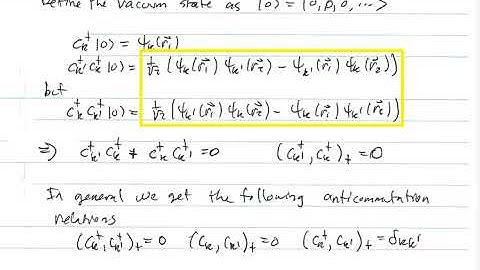 Define the vacuum state as |0⟩ = |0,0,0,...⟩
C_k^† |0⟩ = ψ_k(r⃗_1)
C_{k'}^† C_k^† |0⟩ = 1/√2 (ψ_k(r⃗_1) ψ_{k'}(r⃗_2) − ψ_{k'}(r⃗_1) ψ_k(r⃗_2))
but
C_k^† C_{k'}^† |0⟩ = 1/√2 (ψ_{k'}(r⃗_1) ψ_k(r⃗_2) − ψ_k(r⃗_1) ψ_{k'}(r⃗_2))
⇒ C_{k'}^† C_k^† + C_k^† C_{k'}^† = 0 (C_{k'}^†, C_k^†)_+ = 0
In general we get the following anticommutation
relations
(C_k^†, C_{k'}^†)_+ = 0 (C_k, C_{k'})_+ = 0 (C_k^†, C_{k'})_+ = δ_{kk'}